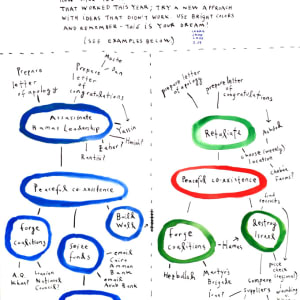 THAT WORKED THIS YEAR; TRY A NEW APPROACH
WITH IDEAS THAT DIDN'T WORK. USE BRIGHT COLORS
AND REMEMBER - THIS IS YOUR DREAM!
(SEE EXAMPLES BELOW)
Prepare
letter
of apology
Prepare
letter
of
congratulations
Assassinate
Hamas Leadership
Yassin
Peaceful co-existence
Build
Wall
Forge
Coalitions
Seize
funds
email
Cairo
Amman
Banks
email
Arab Bank
A.Q.
Iranian
National
Council?
prepare letter
of apology
prepare letter
of
congratulations
Retaliate
choose
location
choose
Peaceful co-existence
find
recruits
Forge
Coalitions
Hamas
Destroy
Israel
Hezbollah
Martyr's
Brigade
price
check
compare
suppliers